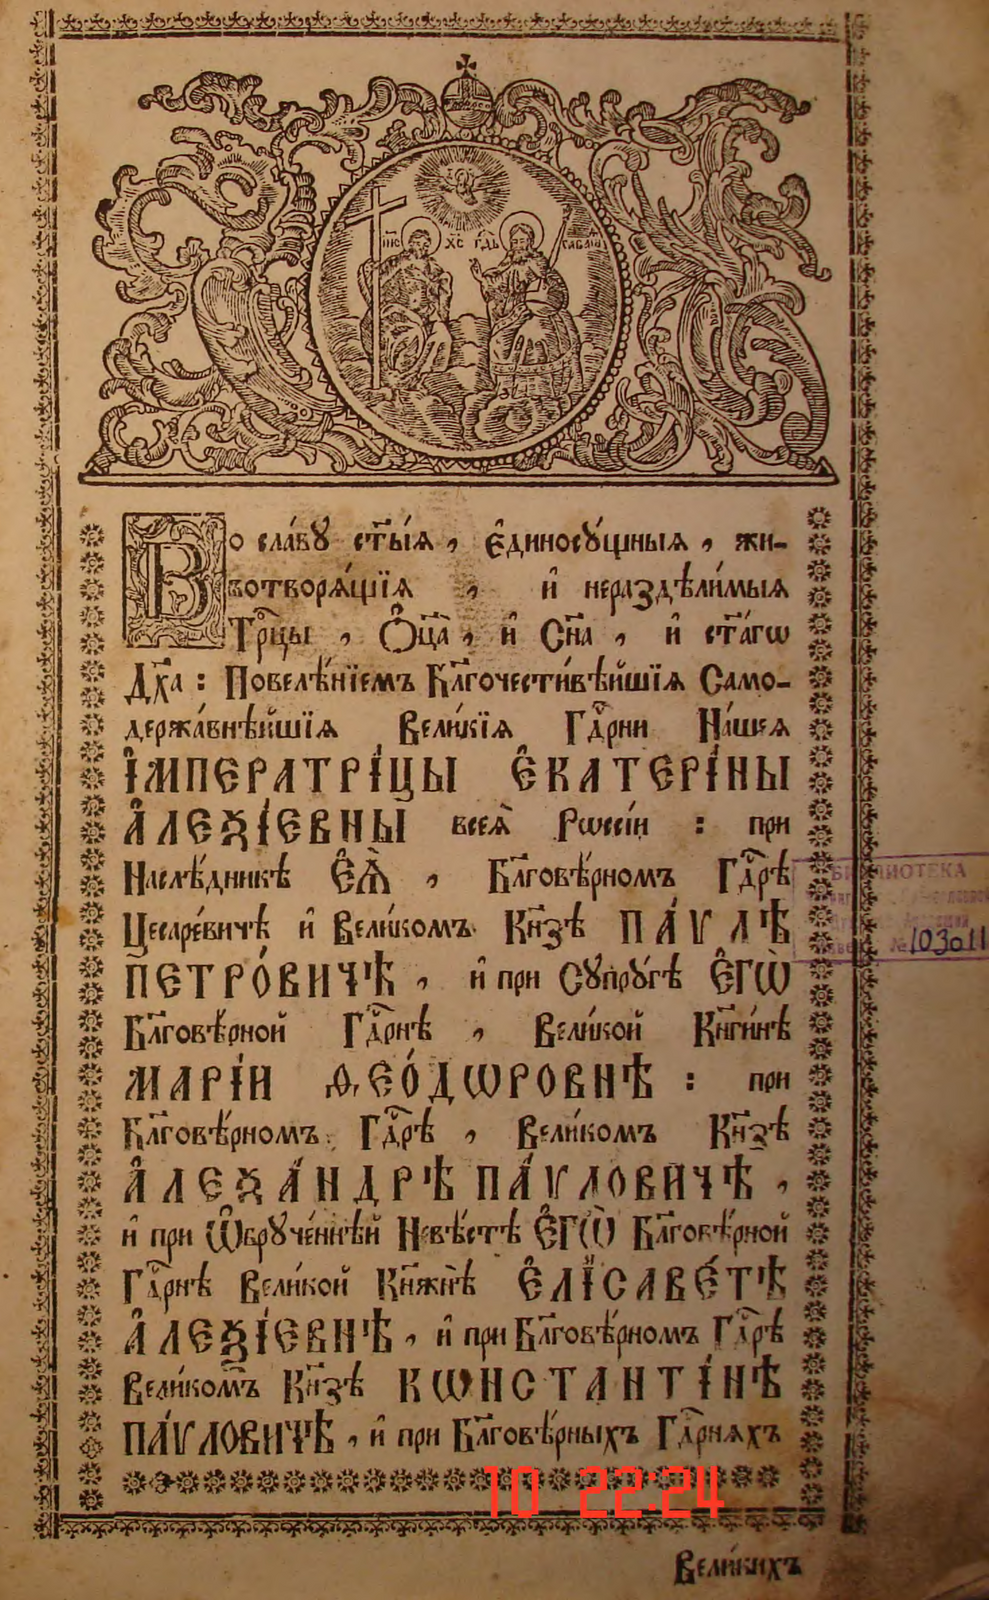 І҃ИС Х҃С Г҃ДЬ САВАѠ
Во сла́вꙋ ст҃ы́ѧ, є҆диносꙋ́щныѧ, жи-
вотворѧ́щїѧ, и҆ нераздѣли́мыѧ
Трⷪ҇цы, Ѻ҆ц҃а̀, и҆ Сн҃а, и҆ ст҃а́гѡ
Дх҃а: Повелѣ́нїемъ Бл҃гочести́вѣйшїѧ Само-
держа́внѣйшїѧ Вели́кїѧ Гдⷭ҇рни На́шеѧ
І҆МПЕРАТРІ́ЦЫ Є҆КАТЕРІ́НЫ
А҆ЛЕѮІ́ЕВНЫ всеѧ̀ Рѡссі́и : при
Наслѣ́дникѣ Є҆Ѧ̀, Бл҃говѣ́рномъ Гдⷭ҇рѣ
Цесаре́вичѣ и҆ Вели́комъ Кн҃зѣ ПА́ѴЛѢ
ПЕТРО́ВИЧѢ, и҆ при Сꙋпрꙋ́гѣ Є҆ГѠ̀
Бл҃говѣ́рной Гдⷭ҇рнѣ, Вели́кой Кн҃ги́нѣ
МАРІ́И Ѳ҆ЕО́ДѠРОВНѢ : при
Бл҃говѣ́рномъ Гдⷭ҇рѣ, Вели́комъ Кн҃зѣ
А҆ЛЕѮА́НДРѢ ПА́ѴЛОВИЧѢ,
и҆ при Ѡ҆брꙋче́ннѣй Невѣ́стѣ Є҆ГѠ̀ Бл҃говѣ́рной
Гдⷭ҇рнѣ Вели́кой Кн҃жнѣ̀ Є҆ЛІСАВЕ́ТѢ
А҆ЛЕѮІ́ЕВНѢ, и҆ при Бл҃говѣ́рномъ Гдⷭ҇рѣ
Вели́комъ Кн҃зѣ КѠНСТАНТІ́НѢ
ПА́ѴЛОВИЧѢ, и҆ при Бл҃говѣ́рныхъ Гдⷭ҇рнѧхъ
Вели́кихъ
БИБЛИОТЕКА
№ 103011
10 22:24